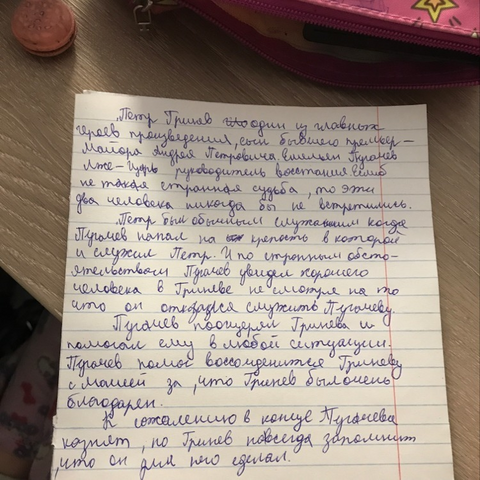 Петр Гринев один из главных
героев произведения, сын бывшего премьер-
майора Андрея Петровича Емельян Пугачев
лже-царь руководитель восстания
не такая странная судьба, то эти
два человека никогда бы не встретились.
Петр был обычным служащим когда
Пугачев напал на крепость в которой
и служил Петр. И по странным обсто-
ятельствам Пугачев увидел хорошего
человека в Гриневе не смотря на то
что он отказался служить Пугачеву.
Пугачев поощерял Гринева и
помогал ему в любой ситуации.
Пугачев помог воссоедениться Гриневу
с Машей за, что Гринев был очень
благодарен.
К сожалению в конце Пугачева
казнят, но Гринев навсегда запомнит
, что он для него сделал.